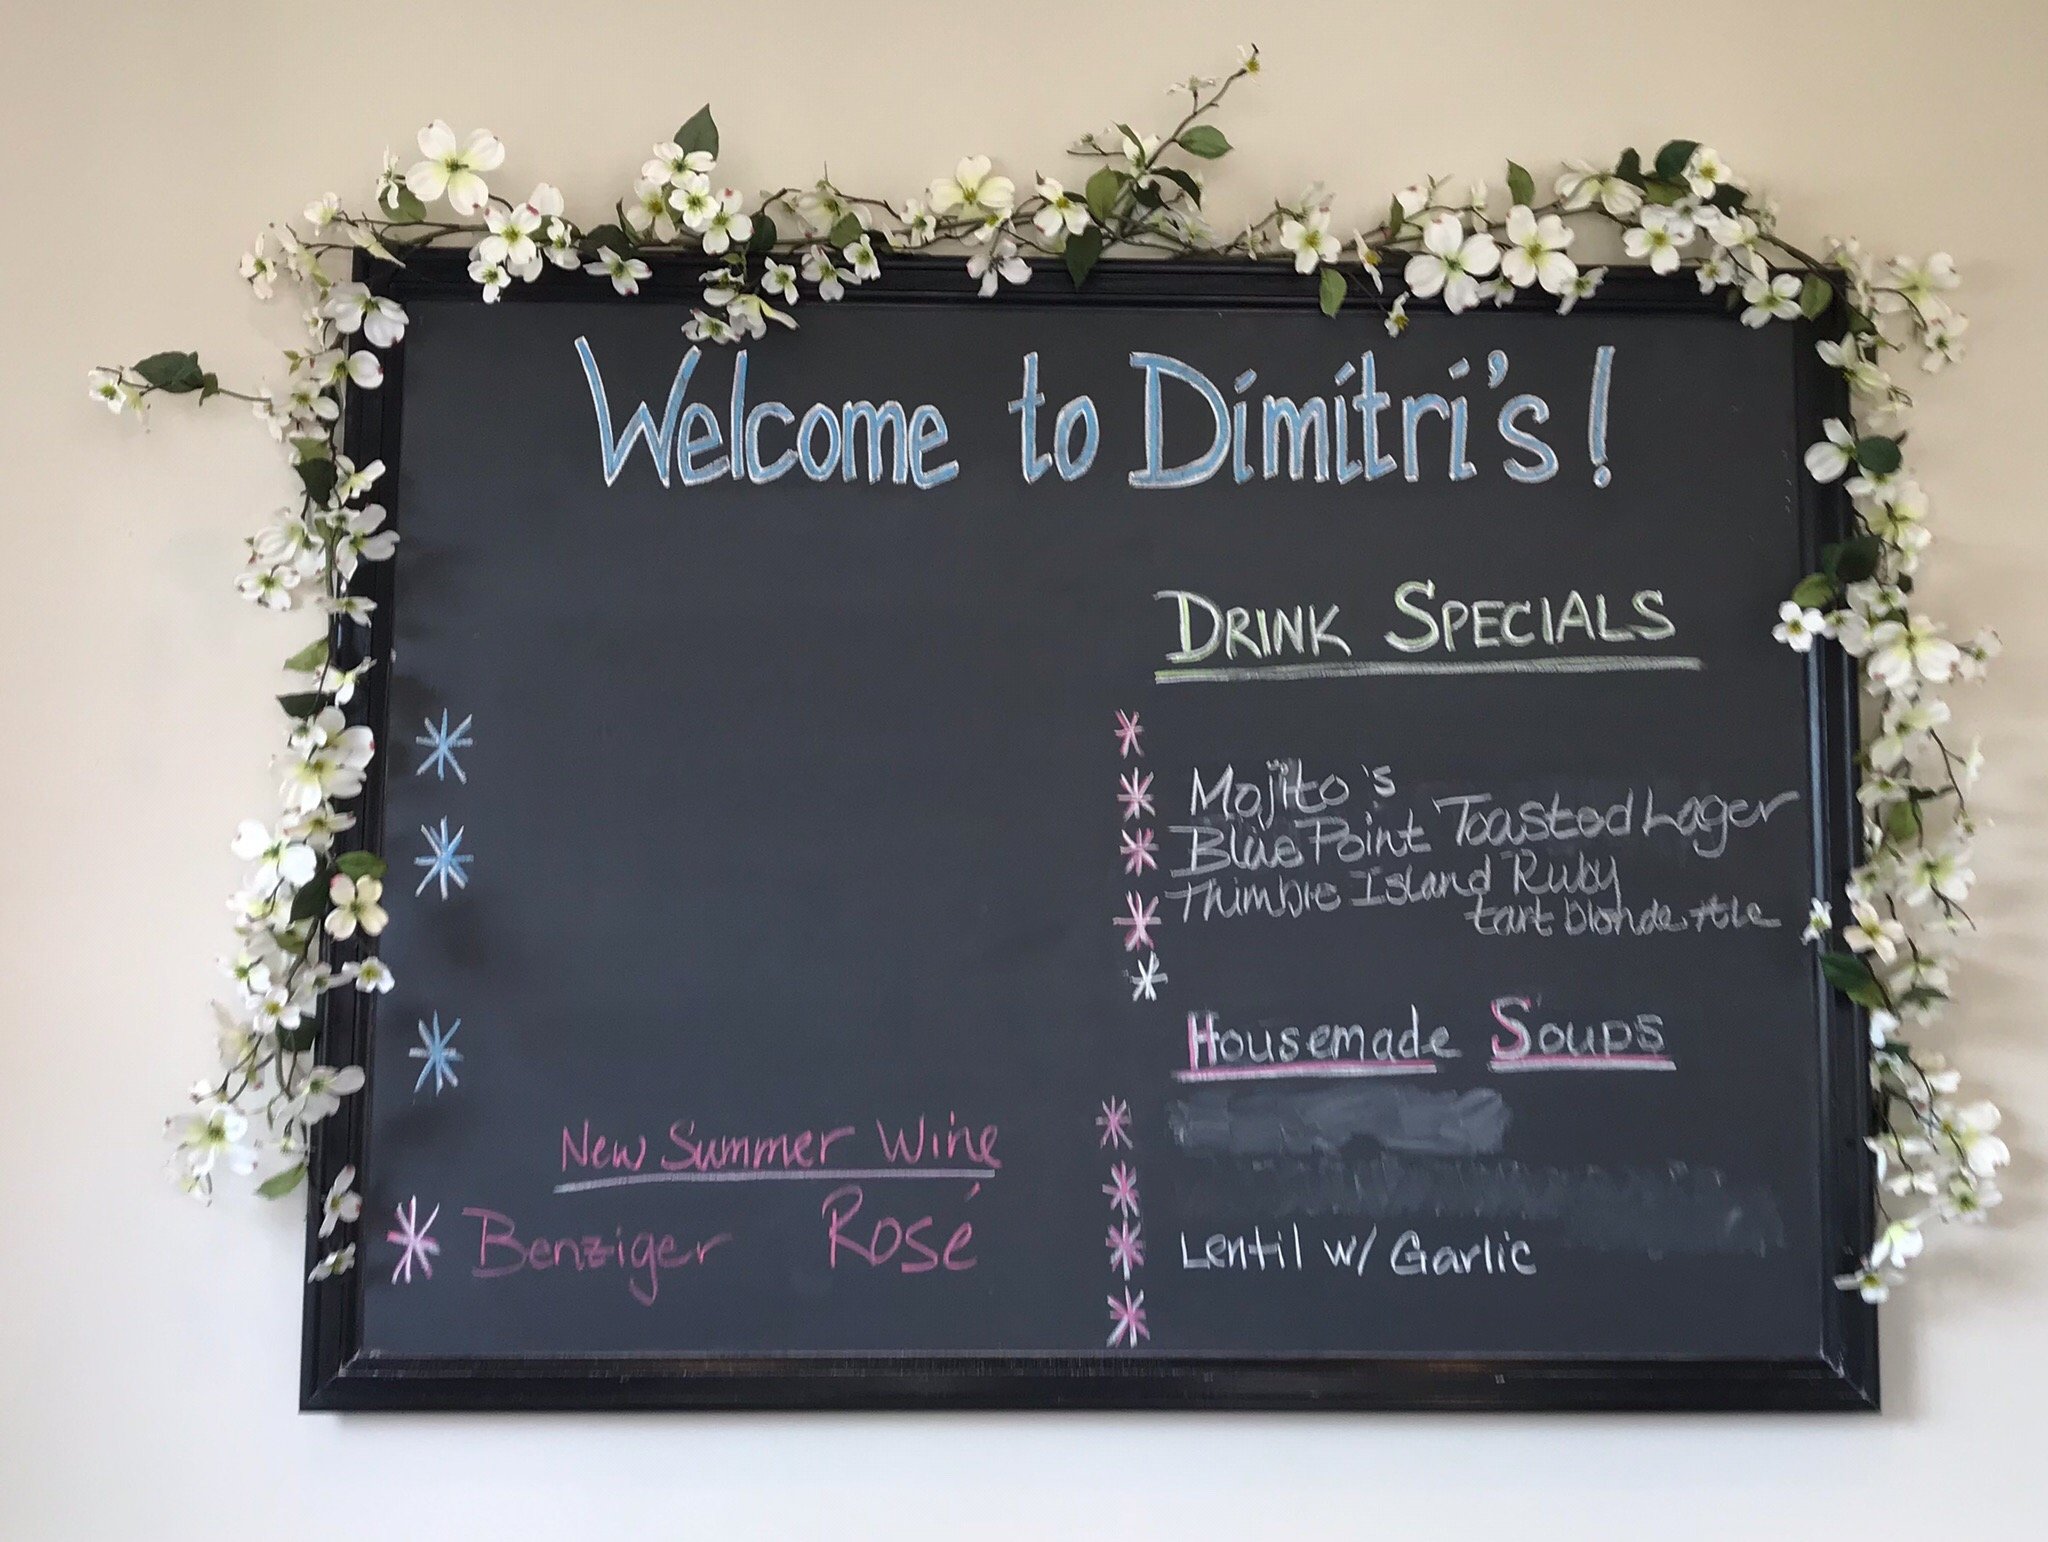 Welcome to Dimitri's!
DRINK SPECIALS
Mojito's
Blue Point Toasted Lager
Thimble Island Ruby
tart blonde Ale
HOUSEMADE SOUPS
Lentil w/ Garlic
New Summer Wine
Benziger Rosé